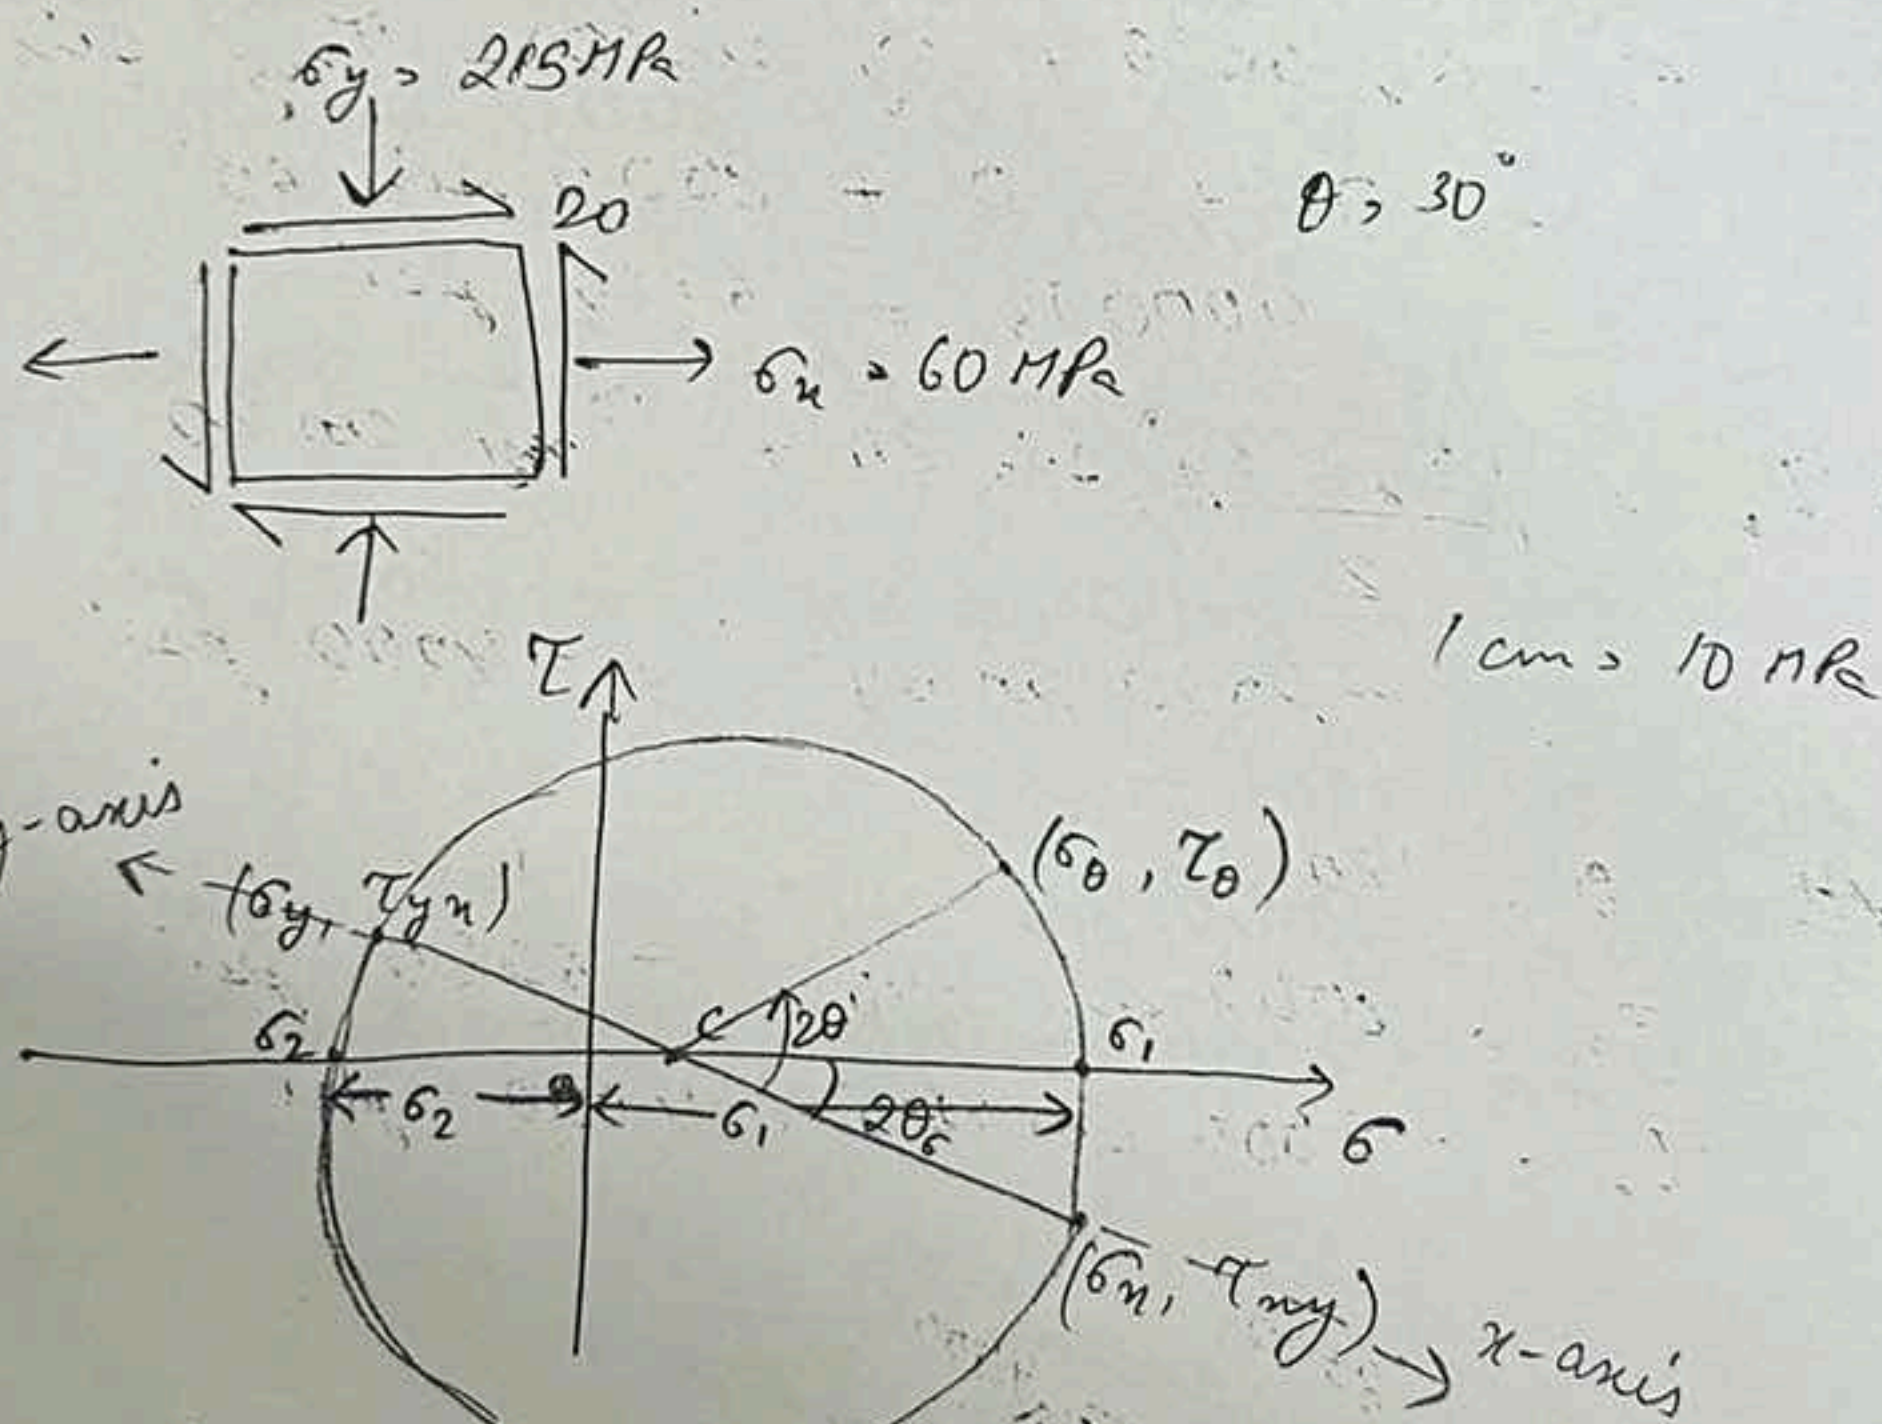 σy = 215 MPa
20
θ = 30°
σx = 60 MPa
1 cm = 10 MPa
τ
y-axis
(σy, τyx)
(σθ, τθ)
C
2θ
σ2
σ1
σ2
σ1
2θ
σ
(σx, -τxy)
x-axis